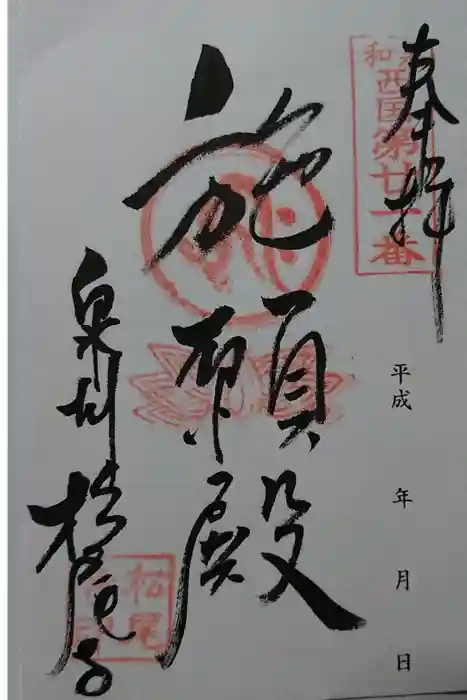 奉拝
和泉西国第廿一番
平成 年 月 日
施願殿
泉州 松尾寺
松尾